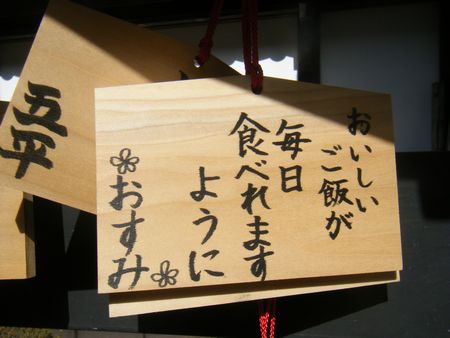 おいしい
ご飯が
毎日
食べれます
ように
おすみ
五平